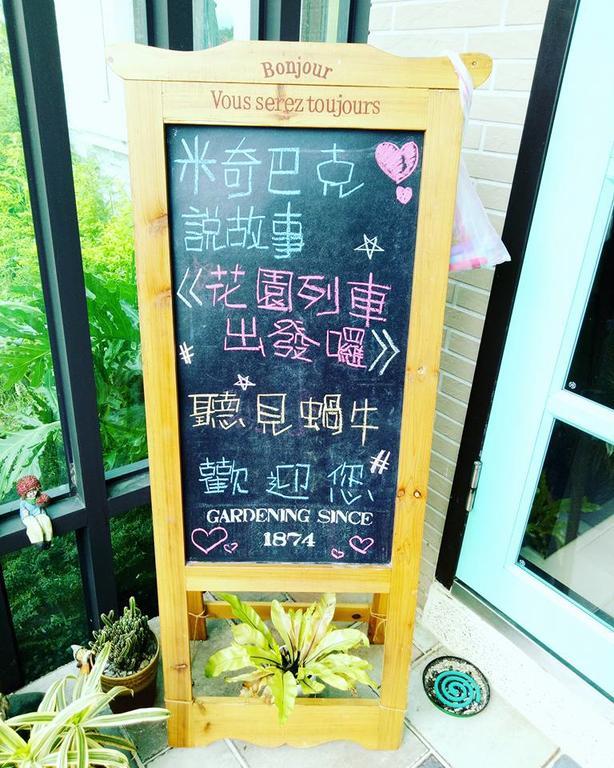 Bonjour
Vous serez toujours
米奇巴克
說故事
《花園列車
出發囉》
#
聽見蝸牛
#
歡迎您
GARDENING SINCE
1874